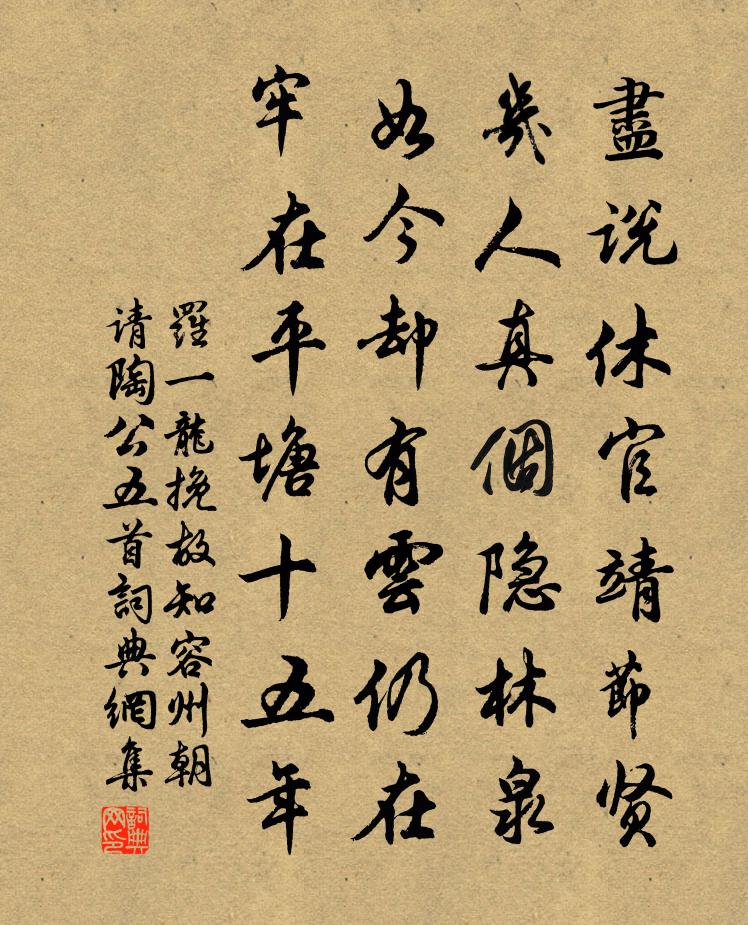 盡说休官靖節贤
幾人真個隐林泉
如今却有雲仍在
牢在平塘十五年
羅一龍挽故知容州朝
请陶公五首詞典網集
詞典网印